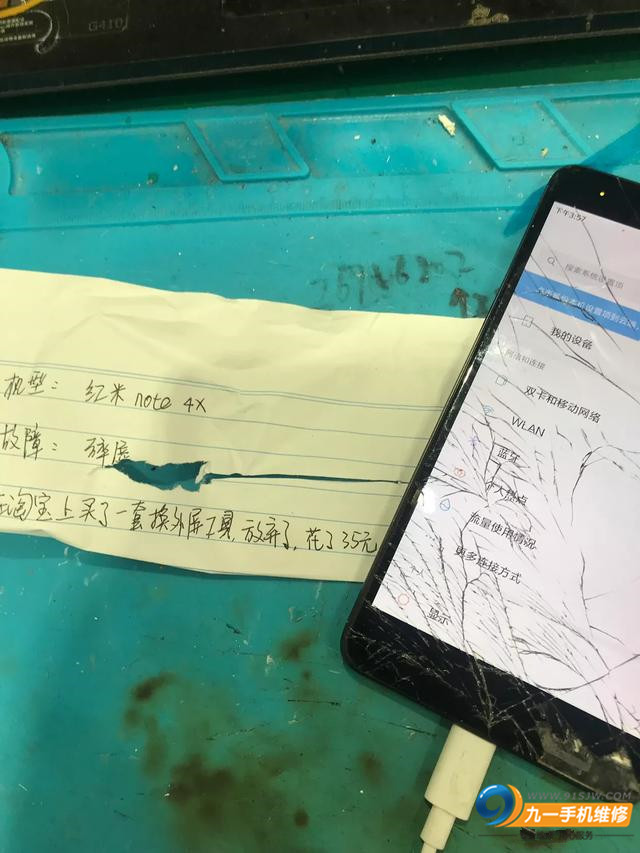 G410
机型：红米 note 4X
故障：碎屏
在淘宝上买了一套换外屏工具，放弃了，花了35元
下午3:57
搜索系统设置项
我的设备
网络和连接
双卡和移动网络
WLAN
蓝牙
个人热点
流量使用情况
更多连接方式
显示
WWW.91SJW.COM
九一手机维修